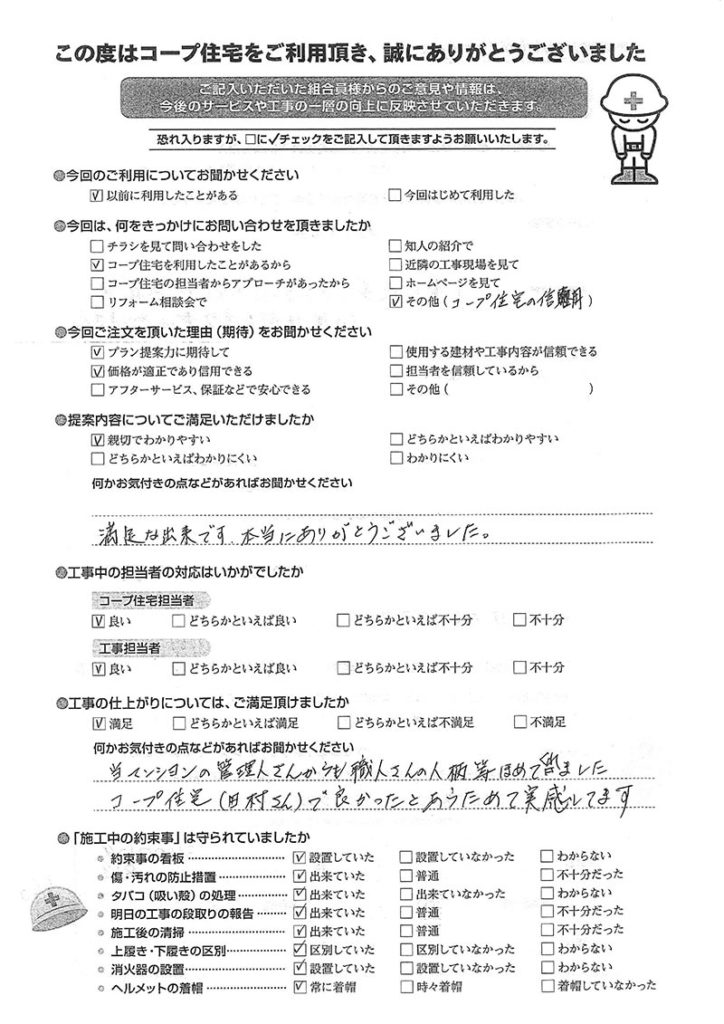 この度はコープ住宅をご利用頂き、誠にありがとうございました
ご記入いただいた組合員様からのご意見や情報は、
今後のサービスや工事の一層の向上に反映させていただきます。
恐れ入りますが、□に✓チェックをご記入して頂きますようお願いいたします。
●今回のご利用についてお聞かせください
☑以前に利用したことがある □今回はじめて利用した
●今回は、何をきっかけにお問い合わせを頂きましたか
□チラシを見て問い合わせをした □知人の紹介で
☑コープ住宅を利用したことがあるから □近隣の工事現場を見て
□コープ住宅の担当者からアプローチがあったから □ホームページを見て
□リフォーム相談会で ☑その他(コープ住宅の信用)
●今回ご注文を頂いた理由(期待)をお聞かせください
☑プラン提案力に期待して □使用する建材や工事内容が信頼できる
☑価格が適正であり信用できる □担当者を信頼しているから
□アフターサービス、保証などで安心できる □その他( )
●提案内容についてご満足いただけましたか
☑親切でわかりやすい □どちらかといえばわかりやすい
□どちらかといえばわかりにくい □わかりにくい
何かお気付きの点などがあればお聞かせください
満足な出来です、本当にありがとうございました。
●工事中の担当者の対応はいかがでしたか
コープ住宅担当者
☑良い □どちらかといえば良い □どちらかといえば不十分 □不十分
工事担当者
☑良い □どちらかといえば良い □どちらかといえば不十分 □不十分
●工事の仕上がりについては、ご満足頂けましたか
☑満足 □どちらかといえば満足 □どちらかといえば不満足 □不満足
何かお気付きの点などがあればお聞かせください
当マンションの管理人さんからも職人さんの人柄等ほめてくれました
コープ住宅(田村さん)で良かったとあらためて実感してます
●「施工中の約束事」は守られていましたか
約束事の看板 ☑設置していた □設置していなかった □わからない
傷・汚れの防止措置 ☑出来ていた □普通 □不十分だった
タバコ(吸い殻)の処理 ☑出来ていた □出来ていなかった □わからない
明日の工事の段取りの報告 ☑出来ていた □普通 □不十分だった
施工後の清掃 ☑出来ていた □普通 □不十分だった
上履き・下履きの区別 ☑区別していた □区別していなかった □わからない
消火器の設置 ☑設置していた □設置していなかった □わからない
ヘルメットの着帽 ☑常に着帽 □時々着帽 □着帽していなかった